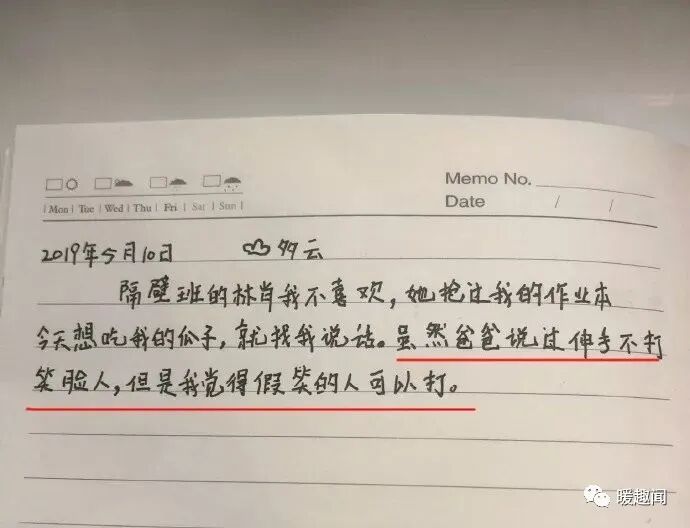 Memo No.
Mon | Tue | Wed | Thu | Fri | Sat | Sun |
Date / /
2019年5月10日 多云
隔壁班的林肖我不喜欢，她抢过我的作业本
今天想吃我的瓜子，就找我说话。虽然爸爸说过伸手不打
笑脸人，但是我觉得假笑的人可以打。
暖趣闻